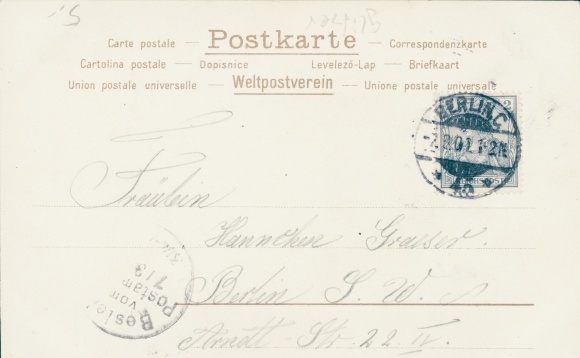 Carte postale — Postkarte — Correspondenzkarte
Cartolina postale — Dopisnice — Levelező-Lap — Briefkaart
Union postale universelle — Weltpostverein — Unione postale universale
2
BERLIN, C.
7.3.01.1-2N.
* *
Fräulein
Hannchen Graeser.
Berlin S. W.
Arndt-Str. 22 IV.
Bestellt
vom
Postamte
7/3